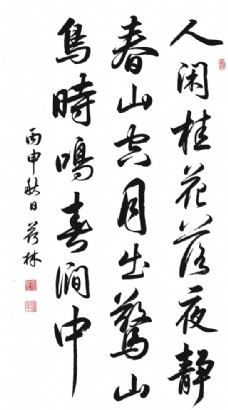 人闲桂花落夜靜
春山空月出驚山
鳥時鳴春澗中
丙申秋日 若林